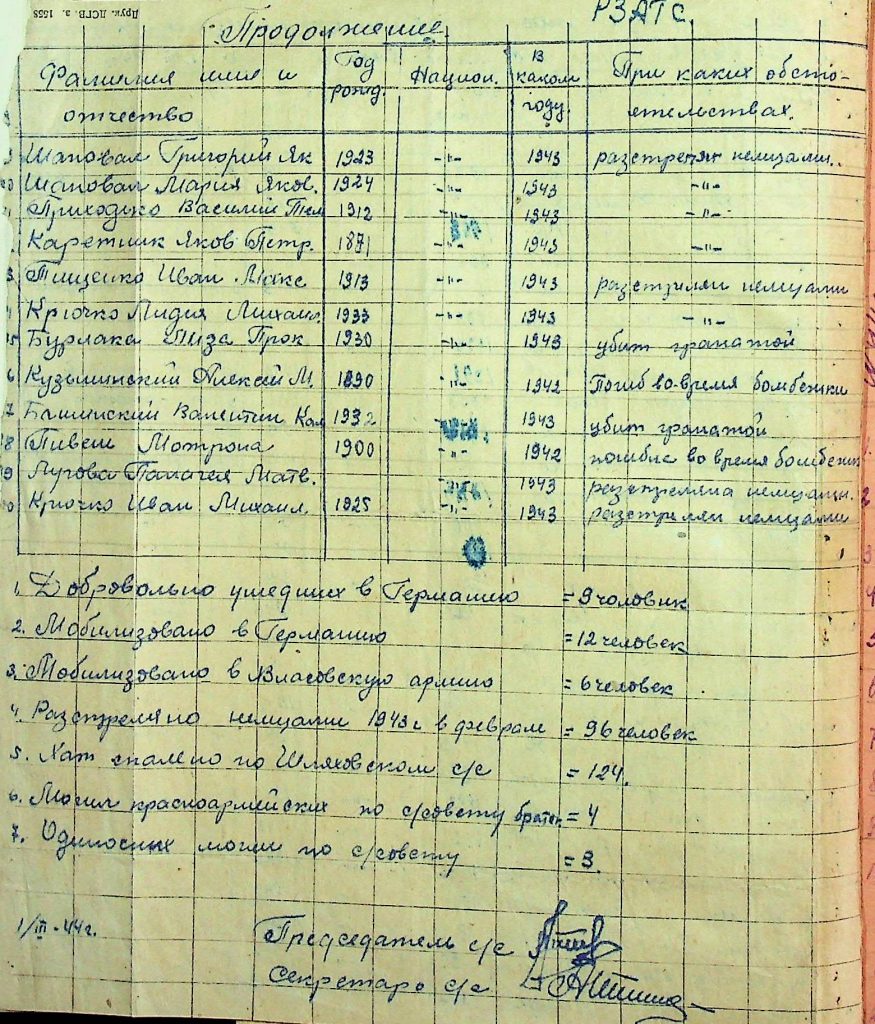 Друк. ЛСГВ. з. 1558
РЗАТС.
Продолжение
Фамилия имя и отчество | Год рожд. | Национ. | В каком году. | При каких обсто-ятельствах.
Шаповал Григорий Як | 1923 | -"- | 1943 | разстрелян немцами.
Шаповал Мария Яков. | 1924 | -"- | 1943 | -"-
Приходько Василий | 1912 | -"- | 1943 | -"-
Каретник Яков Петр. | 1871 | -"- | 1943 | -"-
Тищенко Иван Макс | 1913 | -"- | 1943 | немцами
Крючко Лидия Михаил. | 1933 | -"- | 1943 | -"-
Бурлака Лиза Прок | 1930 | -"- | 1943 | убит гранатой
6 Кузьминский Алексей М. | 1890 | -"- | 1942 | Погиб во-время бомбежки
7 Валентин | 1932 | 1943 | убит гранатой
18 Мотрона | 1900 | -"- | 1942 | во время
19 Лугова Матв. | 1943 | разстреляна немцами.
Крючко Иван Михаил. | 1925 | -"- | 1943 | разстрелян немцами
1. Добровольно ушедших в Германию = 9 человик
2. Мобилизовано в Германию = 12 человек
3. Мобилизовано в Власовскую армию = 6 человек
4. Разстреляно немцами 1943 г. в феврал = 96 человек
5. Хат спалено по Шляховском с/с = 124.
6. Могил красноармейских по с/совету братск = 4
7. Одиносных могил по с/совету = 3.
1/III-44 г.
Председатель с/с
Секретарь с/с